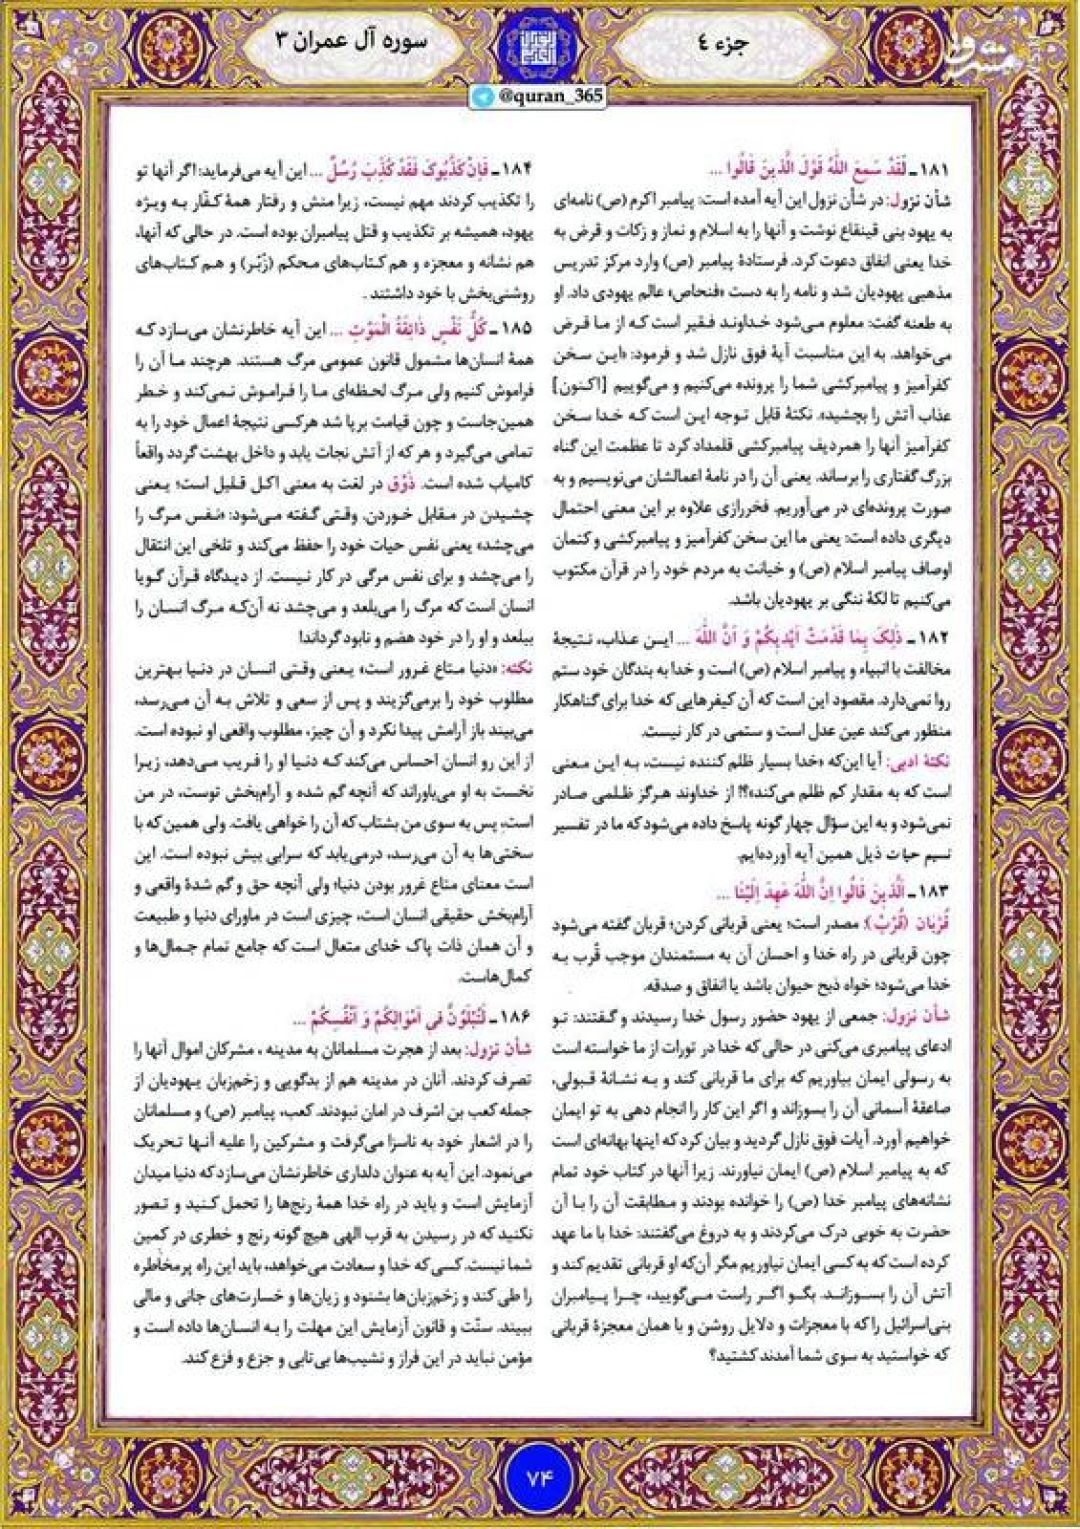 جزء ۴
سوره آل عمران ۳
@quran_365
۱۸۱ـ لَقَدْ سَمِعَ اللّٰهُ قَوْلَ الَّذينَ قالُوا ...
شأن نزول: در شأن نزول این آیه آمده است: پیامبر اکرم (ص) نامه‌ای
به یهود بنی قینقاع نوشت و آنها را به اسلام و نماز و زکات و قرض به
خدا یعنی انفاق دعوت کرد. فرستادهٔ پیامبر (ص) وارد مرکز تدریس
مذهبی یهودیان شد و نامه را به دست «فنحاص» عالم یهودی داد. او
به طعنه گفت: معلوم می‌شود خداوند فقیر است که از ما قرض
می‌خواهد. به این مناسبت آیهٔ فوق نازل شد و فرمود: «این سخن
کفرآمیز و پیامبرکشی شما را پرونده می‌کنیم و می‌گوییم [اکنون]
عذاب آتش را بچشید». نکتهٔ قابل توجه این است که خدا سخن
کفرآمیز آنها را همردیف پیامبرکشی قلمداد کرد تا عظمت این گناه
بزرگ گفتاری را برساند. یعنی آن را در نامهٔ اعمالشان می‌نویسیم و به
صورت پرونده‌ای در می‌آوریم. فخررازی علاوه بر این معنی احتمال
دیگری داده است: یعنی ما این سخن کفرآمیز و پیامبرکشی و کتمان
اوصاف پیامبر اسلام (ص) و خیانت به مردم خود را در قرآن مکتوب
می‌کنیم تا لکهٔ ننگی بر یهودیان باشد.
۱۸۲ـ ذٰلِکَ بِما قَدَّمَتْ اَیْدیکُمْ وَ اَنَّ اللّٰهَ ... ایـن عذاب، نتیجهٔ
مخالفت با انبیاء و پیامبر اسلام (ص) است و خدا به بندگان خود ستم
روا نمی‌دارد. مقصود این است که آن کیفرهایی که خدا برای گناهکار
منظور می‌کند عین عدل است و ستمی در کار نیست.
نکتهٔ ادبی: آیا این‌که «خدا بسیار ظلم کننده نیست، به این معنی
است که به مقدار کم ظلم می‌کند»؟! از خداوند هرگز ظلمی صادر
نمی‌شود و به این سؤال چهار گونه پاسخ داده می‌شود که ما در تفسیر
نسیم حیات ذیل همین آیه آورده‌ایم.
۱۸۳ـ اَلَّذینَ قالُوا اِنَّ اللّٰهَ عَهِدَ اِلَیْنا ...
قُرْبان (قُرْبْ): مصدر است؛ یعنی قربانی کردن؛ قربان گفته می‌شود
چون قربانی در راه خدا و احسان آن به مستمندان موجب قُرب به
خدا می‌شود؛ خواه ذبح حیوان باشد یا انفاق و صدقه.
شأن نزول: جمعی از یهود حضور رسول خدا رسیدند و گفتند: تو
ادعای پیامبری می‌کنی در حالی که خدا در تورات از ما خواسته است
به رسولی ایمان بیاوریم که برای ما قربانی کند و به نشانهٔ قبولی،
صاعقهٔ آسمانی آن را بسوزاند و اگر این کار را انجام دهی به تو ایمان
خواهیم آورد. آیات فوق نازل گردید و بیان کرد که اینها بهانه‌ای است
که به پیامبر اسلام (ص) ایمان نیاورند. زیرا آنها در کتاب خود تمام
نشانه‌های پیامبر خدا (ص) را خوانده بودند و مطابقت آن را با آن
حضرت به خوبی درک می‌کردند و به دروغ می‌گفتند: خدا با ما عهد
کرده است که به کسی ایمان نیاوریم مگر آن‌که او قربانی تقدیم کند و
آتش آن را بسوزاند. بگو اگر راست می‌گویید، چرا پیامبران
بنی‌اسرائیل را که با معجزات و دلایل روشن و با همان معجزهٔ قربانی
که خواستید به سوی شما آمدند کشتید؟
۱۸۴ـ فَاِنْ کَذَّبُوکَ فَقَدْ کُذِّبَ رُسُلٌ ... این آیه می‌فرماید: اگر آنها تو
را تکذیب کردند مهم نیست، زیرا منش و رفتار همهٔ کفّار به ویژه
یهود، همیشه بر تکذیب و قتل پیامبران بوده است. در حالی که آنها،
هم نشانه و معجزه و هم کتاب‌های محکم (زُبُر) و هم کتاب‌های
روشنی‌بخش با خود داشتند .
۱۸۵ـ کُلُّ نَفْسٍ ذائِقَةُ الْمَوْتِ ... این آیه خاطرنشان می‌سازد که
همهٔ انسان‌ها مشمول قانون عمومی مرگ هستند. هرچند ما آن را
فراموش کنیم ولی مرگ لحظه‌ای ما را فراموش نمی‌کند و خطر
همین‌جاست و چون قیامت برپا شد هرکسی نتیجهٔ اعمال خود را به
تمامی می‌گیرد و هر که از آتش نجات یابد و داخل بهشت گردد واقعاً
کامیاب شده است. ذَوْق در لغت به معنی اکل قلیل است؛ یعنی
چشیدن در مقابل خوردن. وقتی گفته می‌شود: «نفس مرگ را
می‌چشد» یعنی نفس حیات خود را حفظ می‌کند و تلخی این انتقال
را می‌چشد و برای نفس مرگی در کار نیست. از دیدگاه قرآن گویا
انسان است که مرگ را می‌بلعد و می‌چشد نه آن‌که مرگ انسان را
ببلعد و او را در خود هضم و نابود گرداند!
نکته: «دنیا متاع غرور است» یعنی وقتی انسان در دنیا بهترین
مطلوب خود را برمی‌گزیند و پس از سعی و تلاش به آن می‌رسد،
می‌بیند باز آرامش پیدا نکرد و آن چیز، مطلوب واقعی او نبوده است.
از این رو انسان احساس می‌کند که دنیا او را فریب می‌دهد، زیرا
نخست به او می‌باوراند که آنچه گم شده و آرام‌بخش توست، در من
است، پس به سوی من بشتاب که آن را خواهی یافت. ولی همین که با
سختی‌ها به آن می‌رسد، درمی‌یابد که سرابی بیش نبوده است. این
است معنای متاع غرور بودن دنیا؛ ولی آنچه حق و گم شدهٔ واقعی و
آرام‌بخش حقیقی انسان است، چیزی است در ماورای دنیا و طبیعت
و آن همان ذات پاک خدای متعال است که جامع تمام جمال‌ها و
کمال‌هاست.
۱۸۶ـ لَتُبْلَوُنَّ فی اَمْوالِکُمْ وَ اَنْفُسِکُمْ ...
شأن نزول: بعد از هجرت مسلمانان به مدینه ، مشرکان اموال آنها را
تصرف کردند. آنان در مدینه هم از بدگویی و زخم‌زبان یهودیان از
جمله کعب بن اشرف در امان نبودند. کعب، پیامبر (ص) و مسلمانان
را در اشعار خود به ناسزا می‌گرفت و مشرکین را علیه آنها تحریک
می‌نمود. این آیه به عنوان دلداری خاطرنشان می‌سازد که دنیا میدان
آزمایش است و باید در راه خدا همهٔ رنج‌ها را تحمل کنید و تصور
نکنید که در رسیدن به قرب الهی هیچ گونه رنج و خطری در کمین
شما نیست. کسی که خدا و سعادت می‌خواهد، باید این راه پرمخاطره
را طی کند و زخم‌زبان‌ها بشنود و زیان‌ها و خسارت‌های جانی و مالی
ببیند. سنّت و قانون آزمایش این مهلت را به انسان‌ها داده است و
مؤمن نباید در این فراز و نشیب‌ها بی‌تابی و جزع و فزع کند.
۷۴